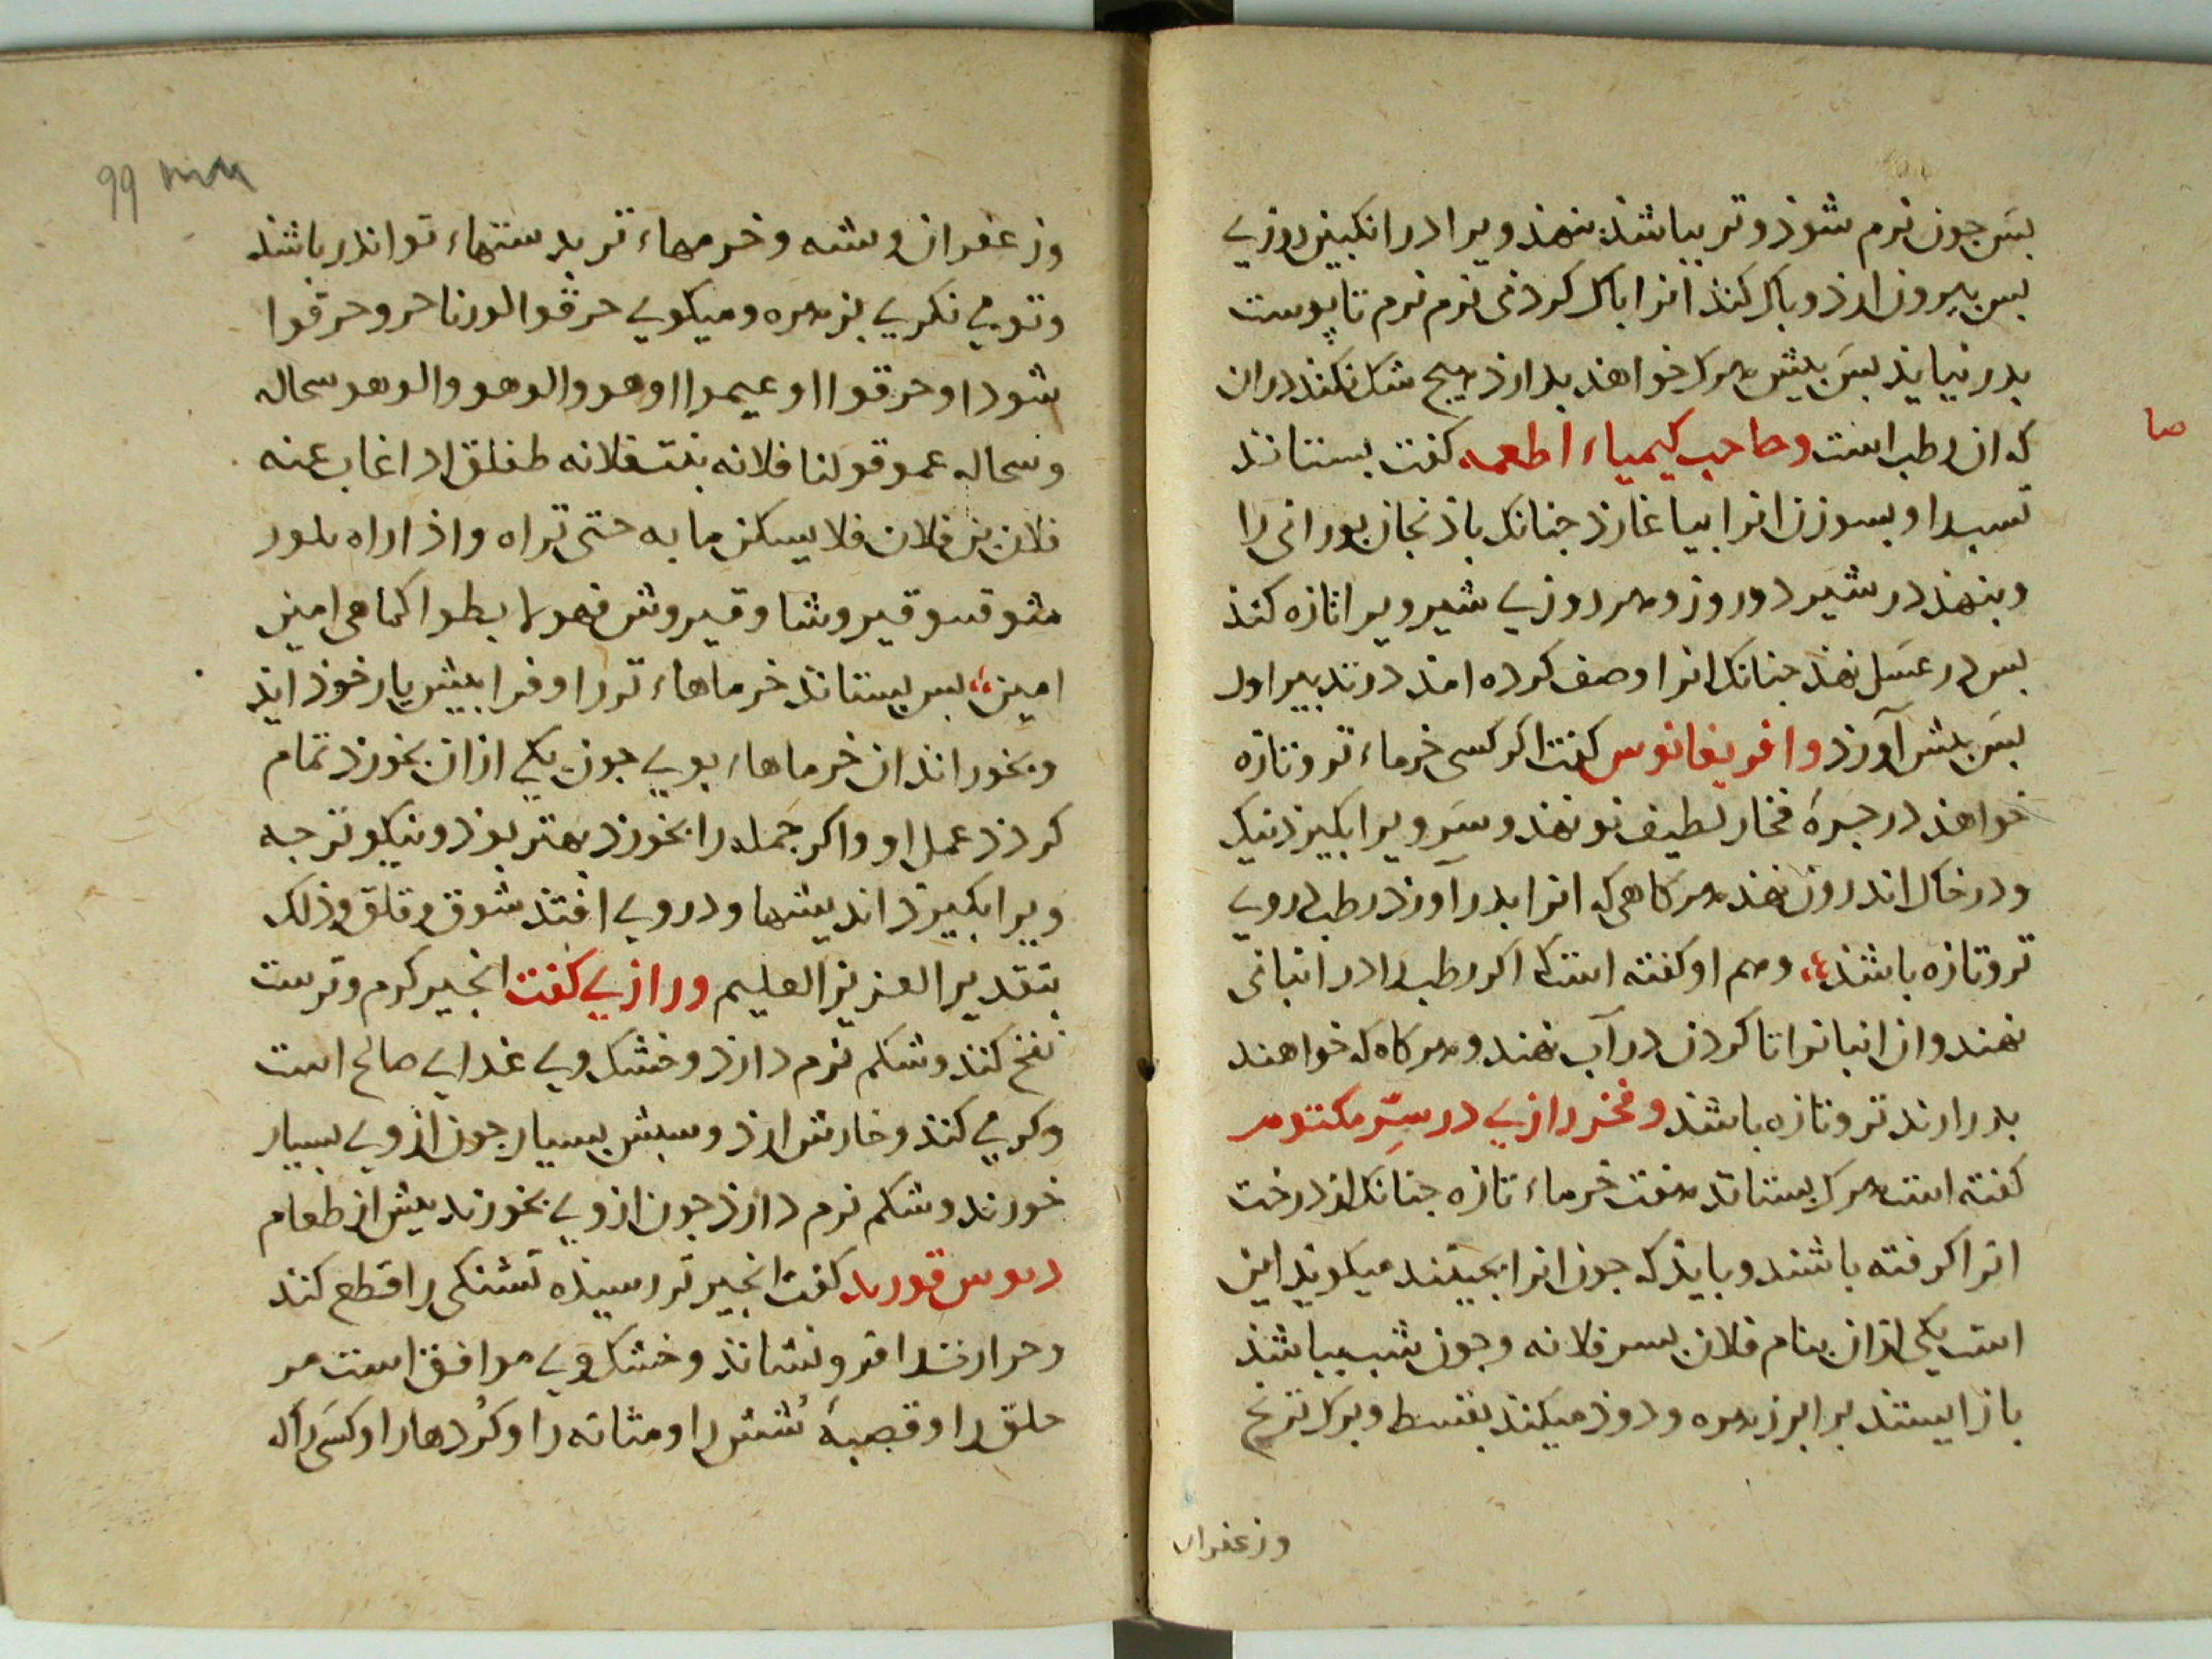 بسَ جون نرم شوذ و تر بباشذ بنهند ویرا در انکبین روزي
بس بیرون ارذ و باک کنذ انرا باک کردنی نرم نرم تا پوست
بدر نیایذ بسَ بیش هرک خواهند بدارذ هیج شک نکنذ دران
که ان رطب است وصاحب کیمیاء اطعمه کفت بستانند
صا
سبد او بسوزن انرا بیاغارذ جنانک باذنجان بورانی را
وبنهند در شیر دو روز و هر روزي شیر ویرا تازه کنذ
بس در عسَل نهذ جنانک انرا وصف کرده امذ در تدبیر اول
بسَ بیش آورذ وافریغانوس کفت اکر کسی خرماء تر و تازه
خواهذ در جرهٔ فخار لطیف نو نهذ و سَر ویرا بکیرذ نیک
و در خاک اندرون نهذ هر کاهی که انرا بدر آورذ رطب بروي
تر و تازه باشذ وهم او کفته است که اکر رطب را در انبانی
نهند و ان انبانرا تا کردن در آب نهند و هر کاه که خواهند
بدر ارند تر و تازه باشد وفخر رازي در سِرّ مکتوم
کفته است هرک بستاند هفت خرماء تازه جنانک از درخت
انرا کرفته باشند و بایذ که جون انرا بجینند میکویذ این
است یکی از ان بنام فلان بسر فلانه و جون شب بباشذ
باز ایستذ برابر زهره و دوذ میکند بقسط و برک ترنج
وزعفران
99
وزعفران وشه وخرمهاء تر بدستهاء تو اندر باشذ
وتو می نکری بزهره و میکویي حرقوا لورنا حر وحرقوا
شودا وحرقوا اوعیموا اوهو والوهو والوهو سحاله
وسحاله عمو قولنا فلانه بنت فلانه طفلق اذا غاب عنه
فلان بن فلان فلا یسکن ما به حتی تراه واذا راه بلور
شوقسو قیروشا وقیروش فهولا بطوا کما هی امین
امین بس بستاند خرماهاء تر را و فرا بیش یار خوذ ایذ
و بخوراند ان خرماهاء بویي جون یکي از ان بخورذ تمام
کردذ عمل او و اکر جمله را بخورذ بهتر بوذ و نیکوتر جه
ویرا بکیرذ اندیشها و در وي افتذ شوق و قلق و ذلک
بتقدیر العزیز العلیم ورازي کفت انجیر کرم و ترست
نفخ کنذ و شکم نرم دارذ و خشک وي غدایي صالح است
و کرمي کنذ و خارش ارذ و سبش بسیار جون از وي بسیار
خورند و شکم نرم دارذ جون از وي بخورند بیش از طعام
دیوس قورید کفت انجیر تر رسیذه تشنکی را قطع کنذ
و حرارت را فرو نشاند و خشک وي موافق است مر
حلق را و قصبهٔ شُش را و مثانه را و کُردها را و کسَی را که